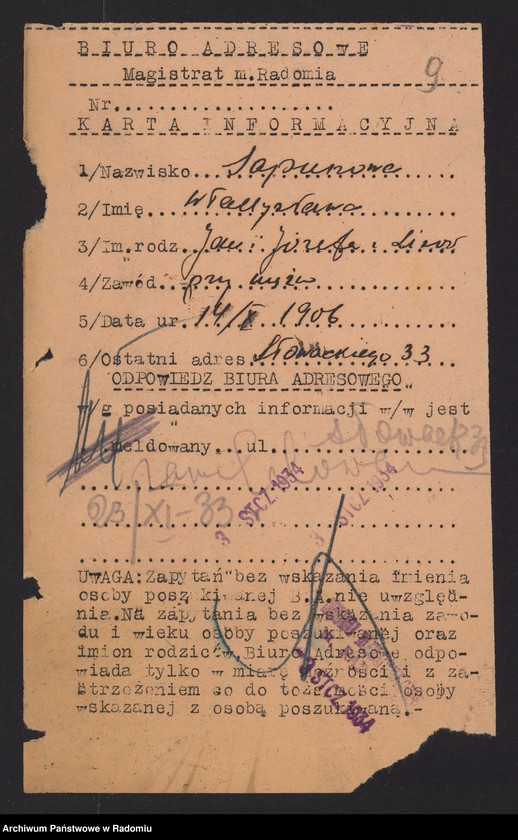 BIURO ADRESOWE
9
Magistrat m.Radomia
Nr.....................
KARTA INFORMACYJNA
1/Nazwisko... Sapunowa
2/Imię... Władysława
3/Im.rodz. Jan i Józefa
4/Zawód... przy mężu
5/Data ur. 14/X 1906
6/Ostatni adres Słowackiego 33
"ODPOWIEDZ BIURA ADRESOWEGO"
W/g posiadanych informacji w/w jest
meldowany...ul. Słowack 33
23/XI-33
3 STCZ 1934
3 STCZ 1934
UWAGA:Zapytań bez wskazania imienia
osoby poszukiwanej B.A.nie uwzględ-
nia.Na zapytania bez wskazania zawo-
du i wieku osoby poszukiwanej oraz
imion rodziców,Biuro Adresowe odpo-
wiada tylko w miarę możności i z za-
strzeżeniem co do tożsamości osoby
wskazanej z osobą poszukiwaną.-
3 STCZ 1934
Archiwum Państwowe w Radomiu